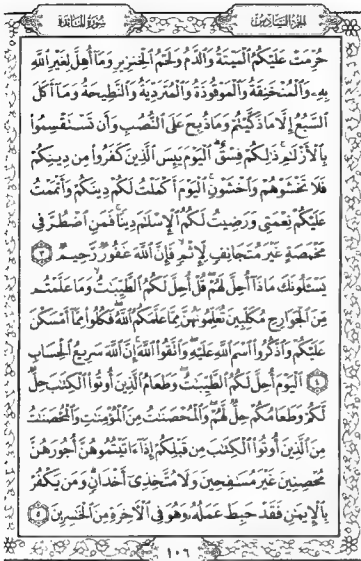 الجزء السادس
سورة المائدة
حُرِّمَتْ عَلَيْكُمُ الْمَيْتَةُ وَالدَّمُ وَلَحْمُ الْخِنزِيرِ وَمَا أُهِلَّ لِغَيْرِ اللَّهِ
بِهِ وَالْمُنْخَنِقَةُ وَالْمَوْقُوذَةُ وَالْمُتَرَدِّيَةُ وَالنَّطِيحَةُ وَمَا أَكَلَ
السَّبُعُ إِلَّا مَا ذَكَّيْتُمْ وَمَا ذُبِحَ عَلَى النُّصُبِ وَأَن تَسْتَقْسِمُوا
بِالْأَزْلَٰمِ ذَٰلِكُمْ فِسْقٌ الْيَوْمَ يَئِسَ الَّذِينَ كَفَرُوا مِن دِينِكُمْ
فَلَا تَخْشَوْهُمْ وَاخْشَوْنِ الْيَوْمَ أَكْمَلْتُ لَكُمْ دِينَكُمْ وَأَتْمَمْتُ
عَلَيْكُمْ نِعْمَتِي وَرَضِيتُ لَكُمُ الْإِسْلَٰمَ دِينًا فَمَنِ اضْطُرَّ فِي
مَخْمَصَةٍ غَيْرَ مُتَجَانِفٍ لِّإِثْمٍ فَإِنَّ اللَّهَ غَفُورٌ رَّحِيمٌ ٣
يَسْـَٔلُونَكَ مَاذَا أُحِلَّ لَهُمْ قُلْ أُحِلَّ لَكُمُ الطَّيِّبَٰتُ وَمَا عَلَّمْتُم
مِّنَ الْجَوَارِحِ مُكَلِّبِينَ تُعَلِّمُونَهُنَّ مِمَّا عَلَّمَكُمُ اللَّهُ فَكُلُوا مِمَّا أَمْسَكْنَ
عَلَيْكُمْ وَاذْكُرُوا اسْمَ اللَّهِ عَلَيْهِ وَاتَّقُوا اللَّهَ إِنَّ اللَّهَ سَرِيعُ الْحِسَابِ
٤ الْيَوْمَ أُحِلَّ لَكُمُ الطَّيِّبَٰتُ وَطَعَامُ الَّذِينَ أُوتُوا الْكِتَٰبَ حِلٌّ
لَّكُمْ وَطَعَامُكُمْ حِلٌّ لَّهُمْ وَالْمُحْصَنَٰتُ مِنَ الْمُؤْمِنَٰتِ وَالْمُحْصَنَٰتُ
مِنَ الَّذِينَ أُوتُوا الْكِتَٰبَ مِن قَبْلِكُمْ إِذَا ءَاتَيْتُمُوهُنَّ أُجُورَهُنَّ
مُحْصِنِينَ غَيْرَ مُسَٰفِحِينَ وَلَا مُتَّخِذِي أَخْدَانٍ وَمَن يَكْفُرْ
بِالْإِيمَٰنِ فَقَدْ حَبِطَ عَمَلُهُ وَهُوَ فِي الْءَاخِرَةِ مِنَ الْخَٰسِرِينَ ٥
١٠٦